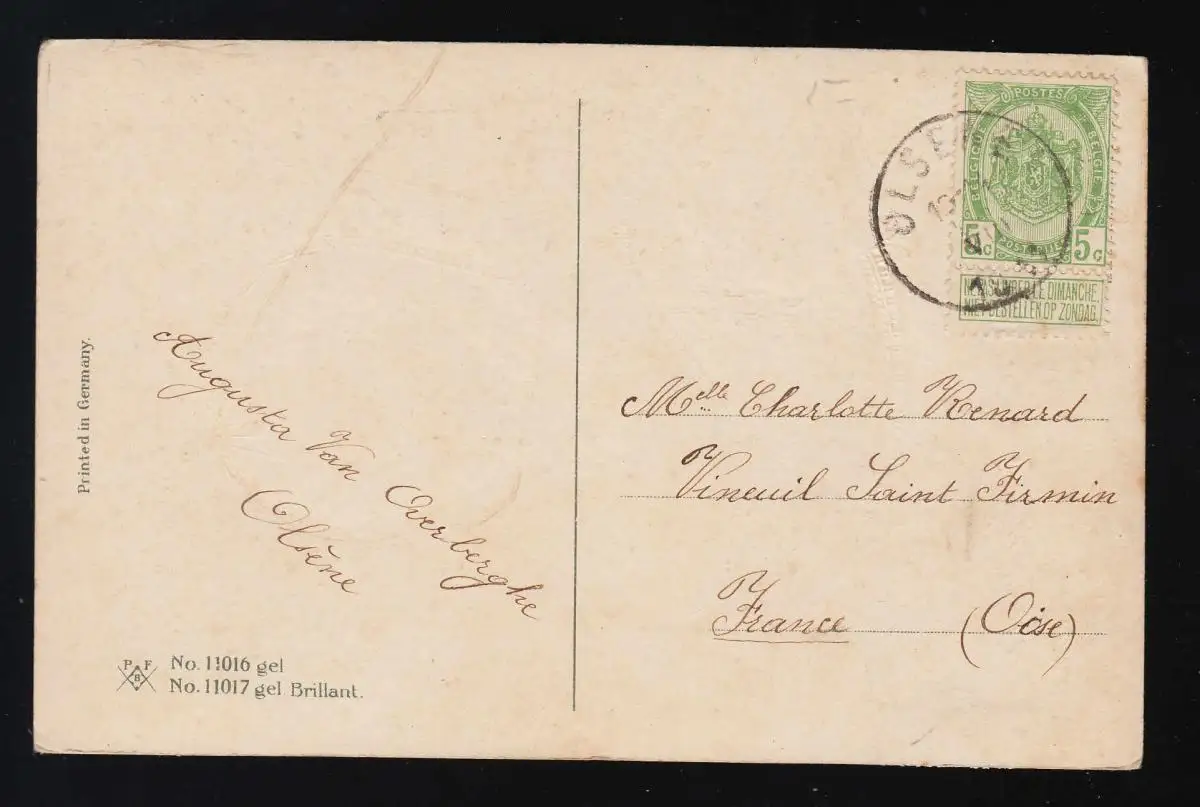 POSTES
BELGIQUE BELGIË
5c POSTERIJEN 5c
NE PAS LIVRER LE DIMANCHE.
NIET BESTELLEN OP ZONDAG.
OLSENE
Printed in Germany.
Augusta Van Overberghe
Olsène
Melle Charlotte Renard
Vineuil Saint Firmin
France (Oise)
P F B
No. 11016 gel
No. 11017 gel Brillant.